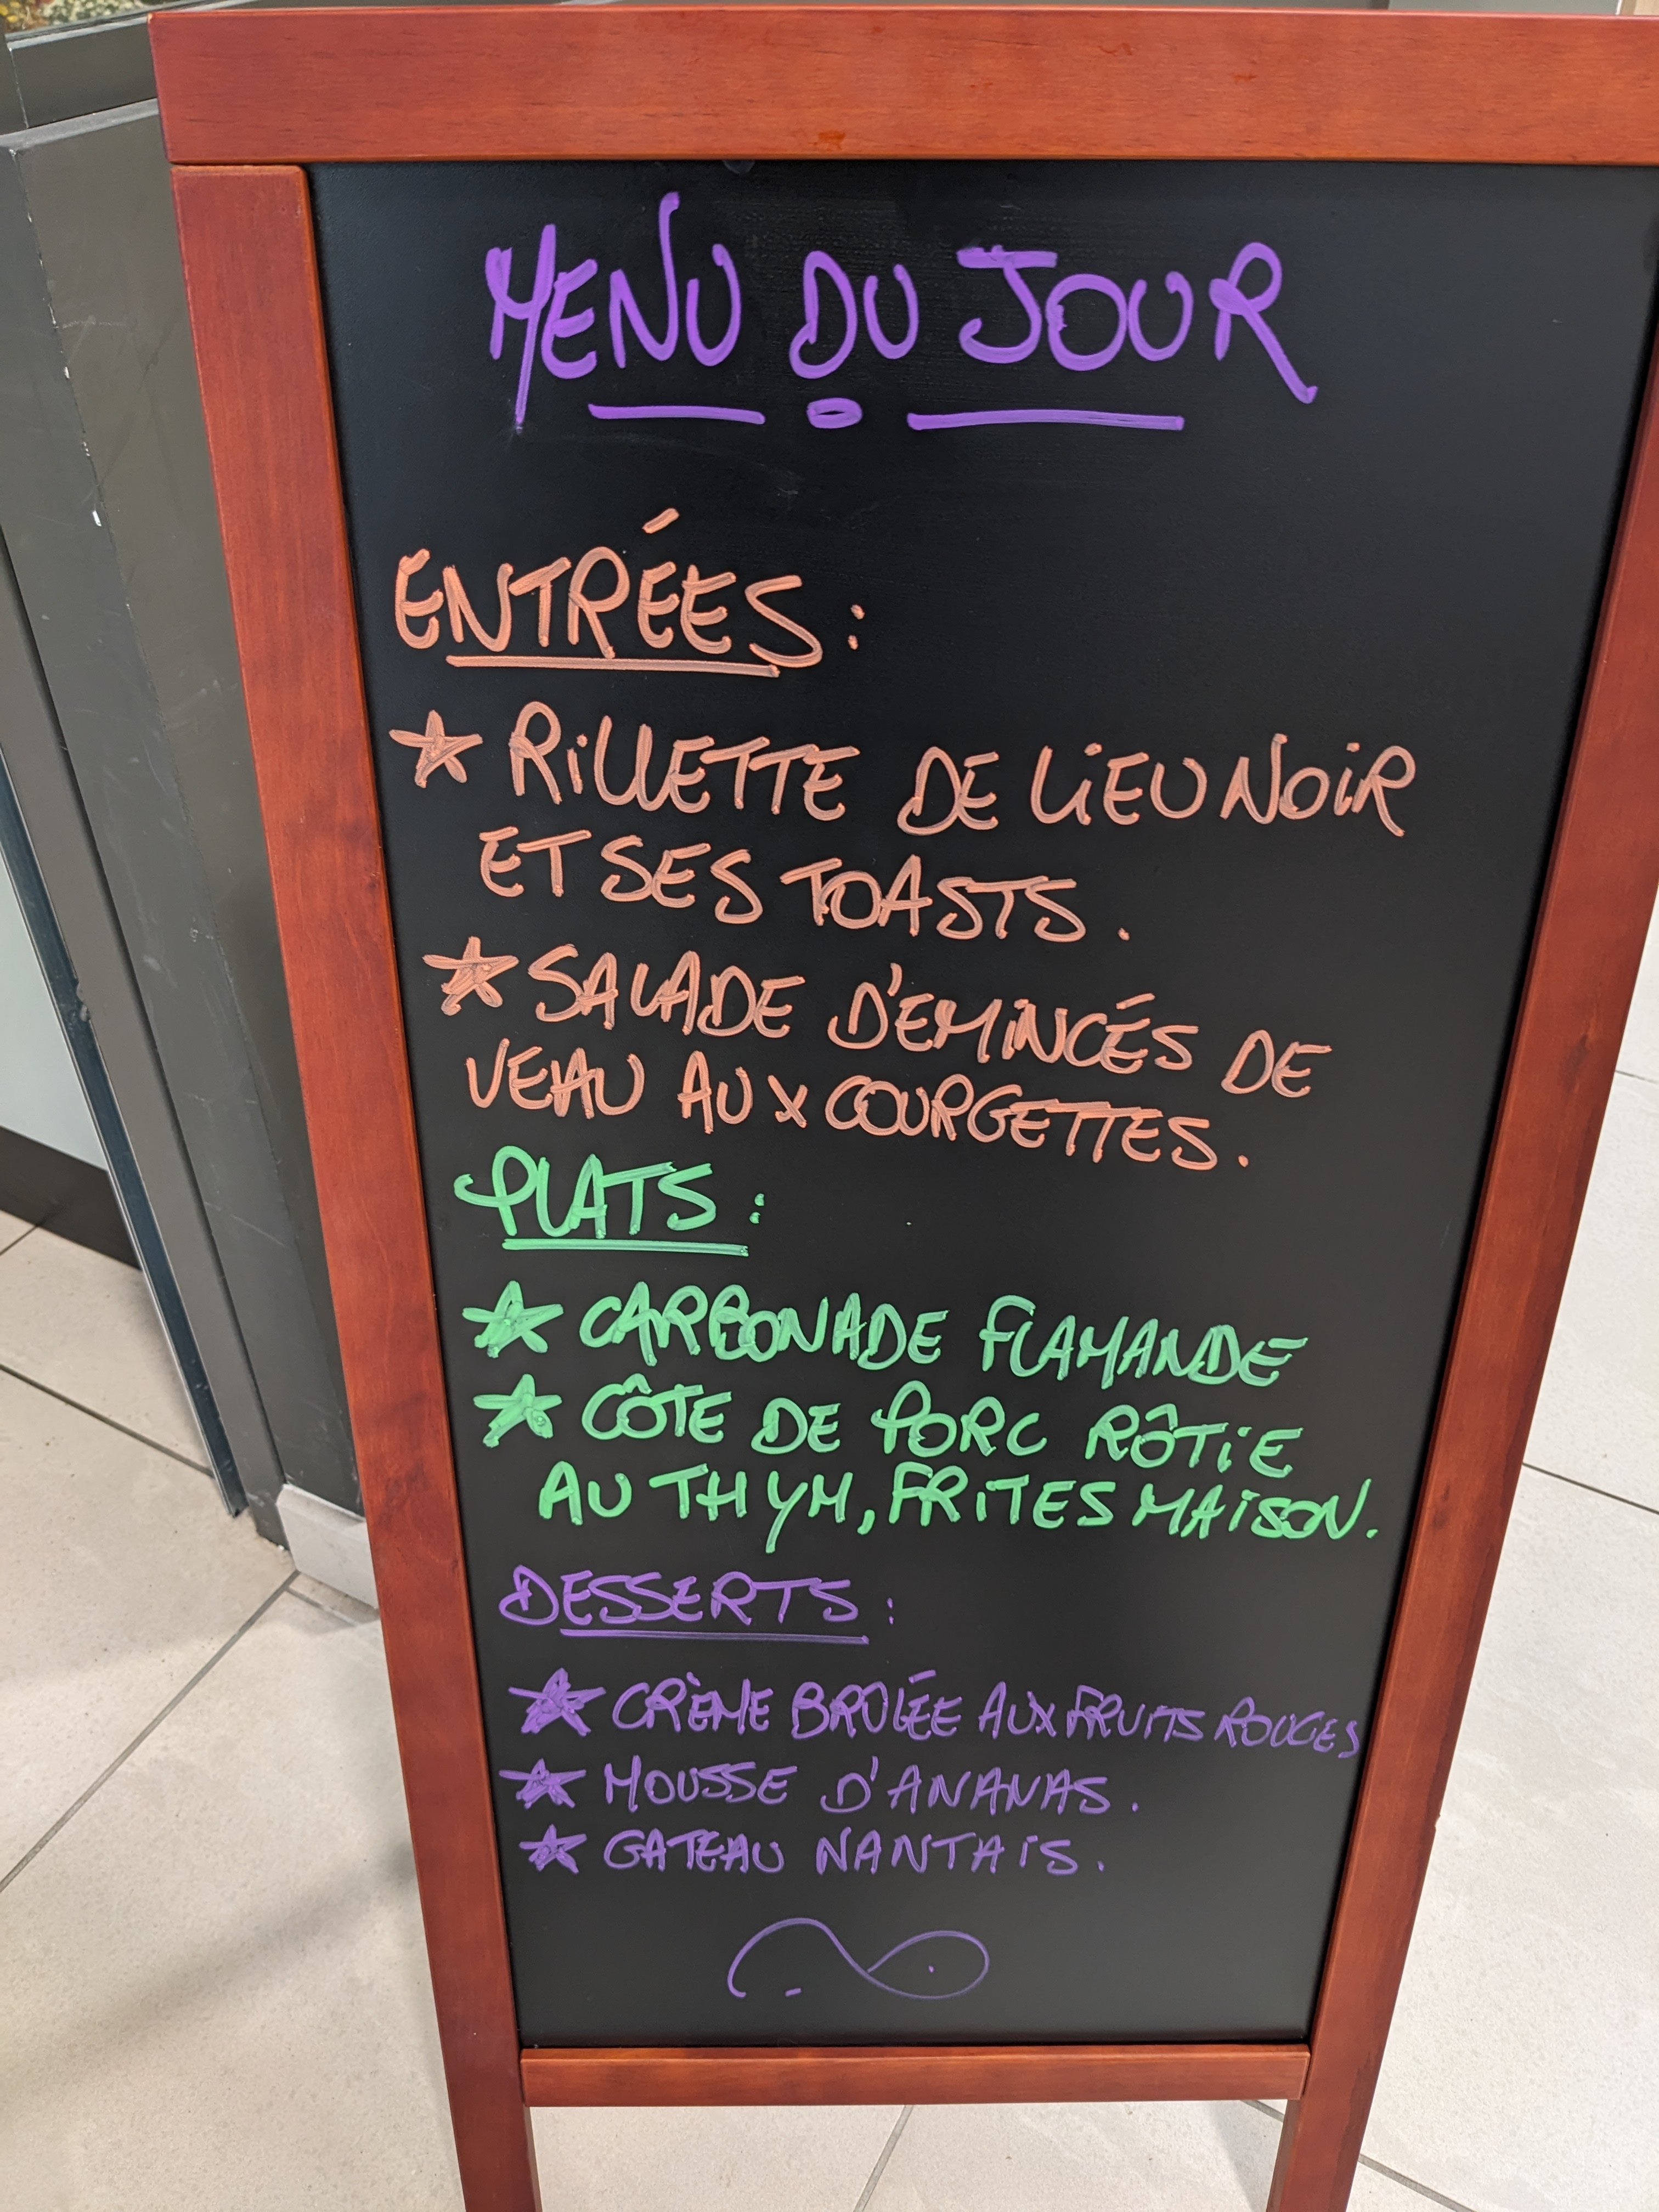 MENU DU JOUR
ENTRÉES :
RILLETTE DE LIEU NOIR
ET SES TOASTS.
SALADE D'EMINCÉS DE
VEAU AUX COURGETTES.
PLATS :
CARBONADE FLAMANDE
CÔTE DE PORC RÔTIE
AU THYM, FRITES MAISON.
DESSERTS :
CRÈME BRULÉE AUX FRUITS ROUGES
MOUSSE D'ANANAS.
GATEAU NANTAIS.